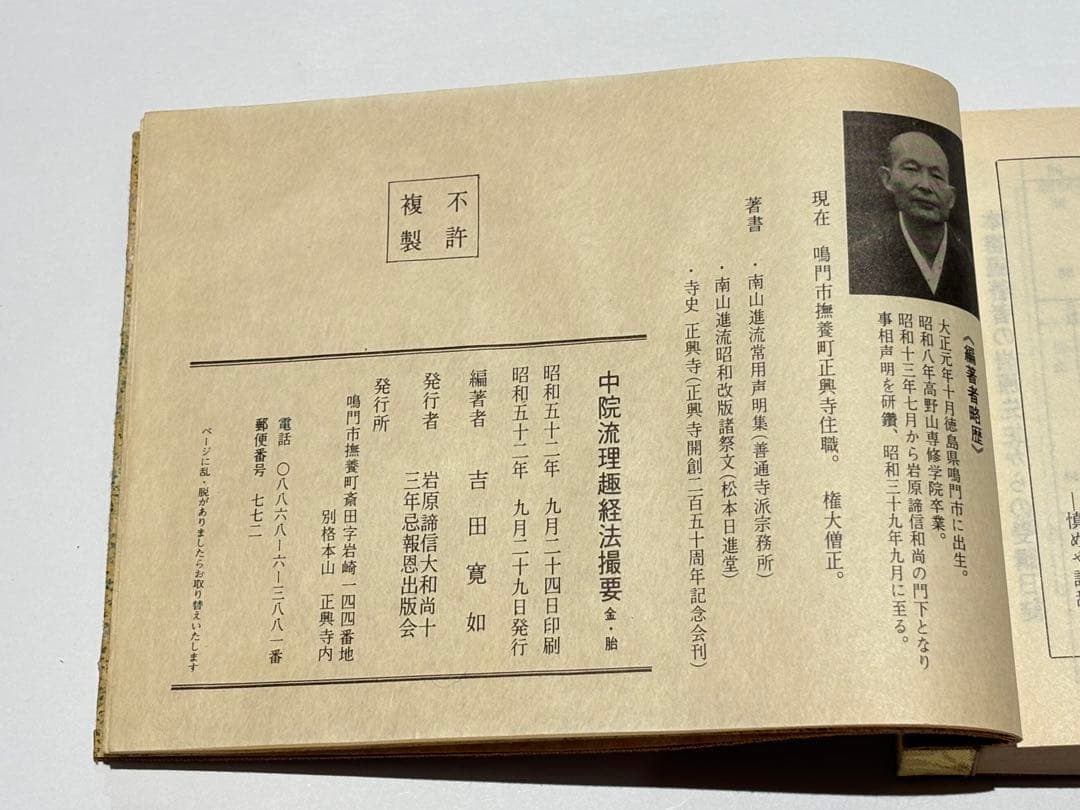 《編著者略歴》
大正元年十月徳島県鳴門市に出生。
昭和八年高野山専修学院卒業。
昭和十三年七月から岩原諦信和尚の門下となり
事相声明を研鑽、昭和三十九年九月に至る。
現在 鳴門市撫養町正興寺住職。 権大僧正。
著書 ・南山進流常用声明集(善通寺派宗務所)
・南山進流昭和改版諸祭文(松本日進堂)
・寺史 正興寺(正興寺開創二百五十周年記念会刊)
不許
複製
中院流理趣経法撮要 金・胎
昭和五十二年 九月二十四日印刷
昭和五十二年 九月二十九日発行
編著者 吉田寛如
発行者 岩原諦信大和尚十
三年忌報恩出版会
発行所
鳴門市撫養町斎田字岩崎一四四番地
別格本山 正興寺内
電話 〇八八六八ー六ー三七八一番
郵便番号 七七二
ページに乱・脱がありましたらお取り替えいたします